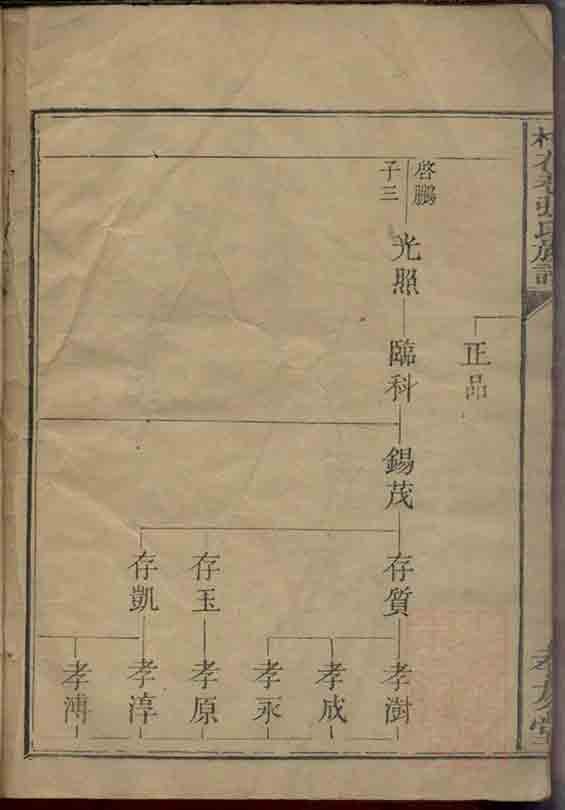 正品
啓鵬
子三
光照
臨科
錫茂
存質
存玉
存凱
孝澍
孝成
孝永
孝原
孝淳
孝溥
張氏族譜
孝友堂